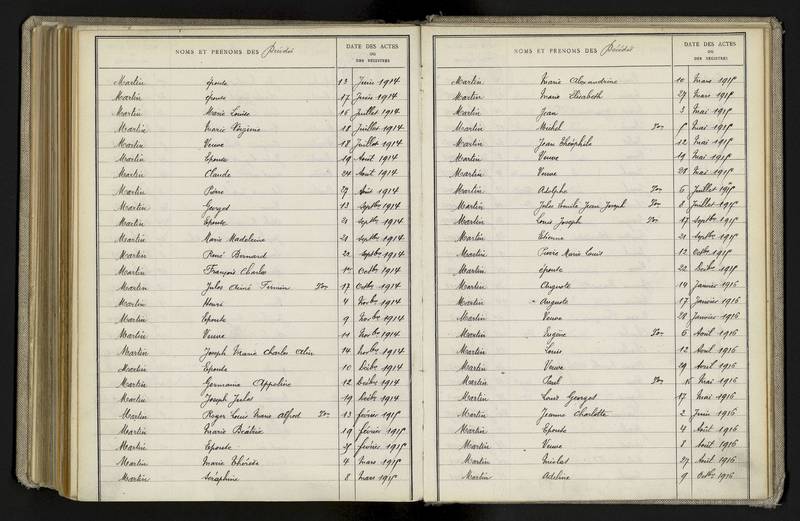 NOMS ET PRÉNOMS DES Décédés
DATE DES ACTES
OU
DES REGISTRES
Martin épouse 13 Juin 1914
Martin épouse 17 Juin 1914
Martin Marie Louise 16 Juillet 1914
Martin Marie Virginie 18 Juillet 1914
Martin Veuve 18 Juillet 1914
Martin Epouse 19 Août 1914
Martin Claude 24 Août 1914
Martin Pierre 29 Août 1914
Martin Georges 13 Septbre 1914
Martin Epouse 21 Septbre 1914
Martin Marie Madeleine 21 Septbre 1914
Martin René Bernard 22 Septbre 1914
Martin François Charles Octbre 1914
Martin Jules Aimé Firmin Ton 17 Octbre 1914
Martin Henri 4 Novbre 1914
Martin Epouse 9 Novbre 1914
Martin Veuve 11 Novbre 1914
Martin Joseph Marie Charles 14 Novbre 1914
Martin Epouse 10 Décbre 1914
Martin Germaine Appoline 12 Décbre 1914
Martin Joseph Jules 19 Décbre 1914
Martin Roger Louis Marie Alfred Ton 13 février 1915
Martin Marie Béatrix 19 février 1915
Martin Epouse 25 février 1915
Martin Marie Thérèse 4 Mars 1915
Martin Séraphine 8 Mars 1915
NOMS ET PRÉNOMS DES Décédés
DATE DES ACTES
OU
DES REGISTRES
Martin Marie Alexandrine 10 Mars 1915
Martin Marie Elisabeth 29 Mars 1915
Martin Jean 3 Mai 1915
Martin Michel Ton 5 Mai 1915
Martin Jean Théophile 12 Mai 1915
Martin Veuve 19 Mai 1915
Martin Veuve 28 Mai 1915
Martin Adolphe Ton 6 Juillet 1915
Martin Jules Emile Jean Joseph Ton 8 Juillet 1915
Martin Louis Joseph Ton 17 Septbre 1915
Martin Etienne 21 Septbre 1915
Martin Pierre Marie Louis 12 Octbre 1915
Martin épouse 22 Décbre 1915
Martin Auguste 14 Janvier 1916
Martin Auguste 17 Janvier 1916
Martin Veuve 28 Janvier 1916
Martin Eugène Ton 6 Avril 1916
Martin Louis 12 Avril 1916
Martin Veuve 29 Avril 1916
Martin Paul Ton 15 Mai 1916
Martin Louis Georges 17 Mai 1916
Martin Jeanne Charlotte 2 Juin 1916
Martin Epouse 4 Août 1916
Martin Veuve 8 Août 1916
Martin Nicolas 27 Août 1916
Martin Adeline 9 Octbre 1916